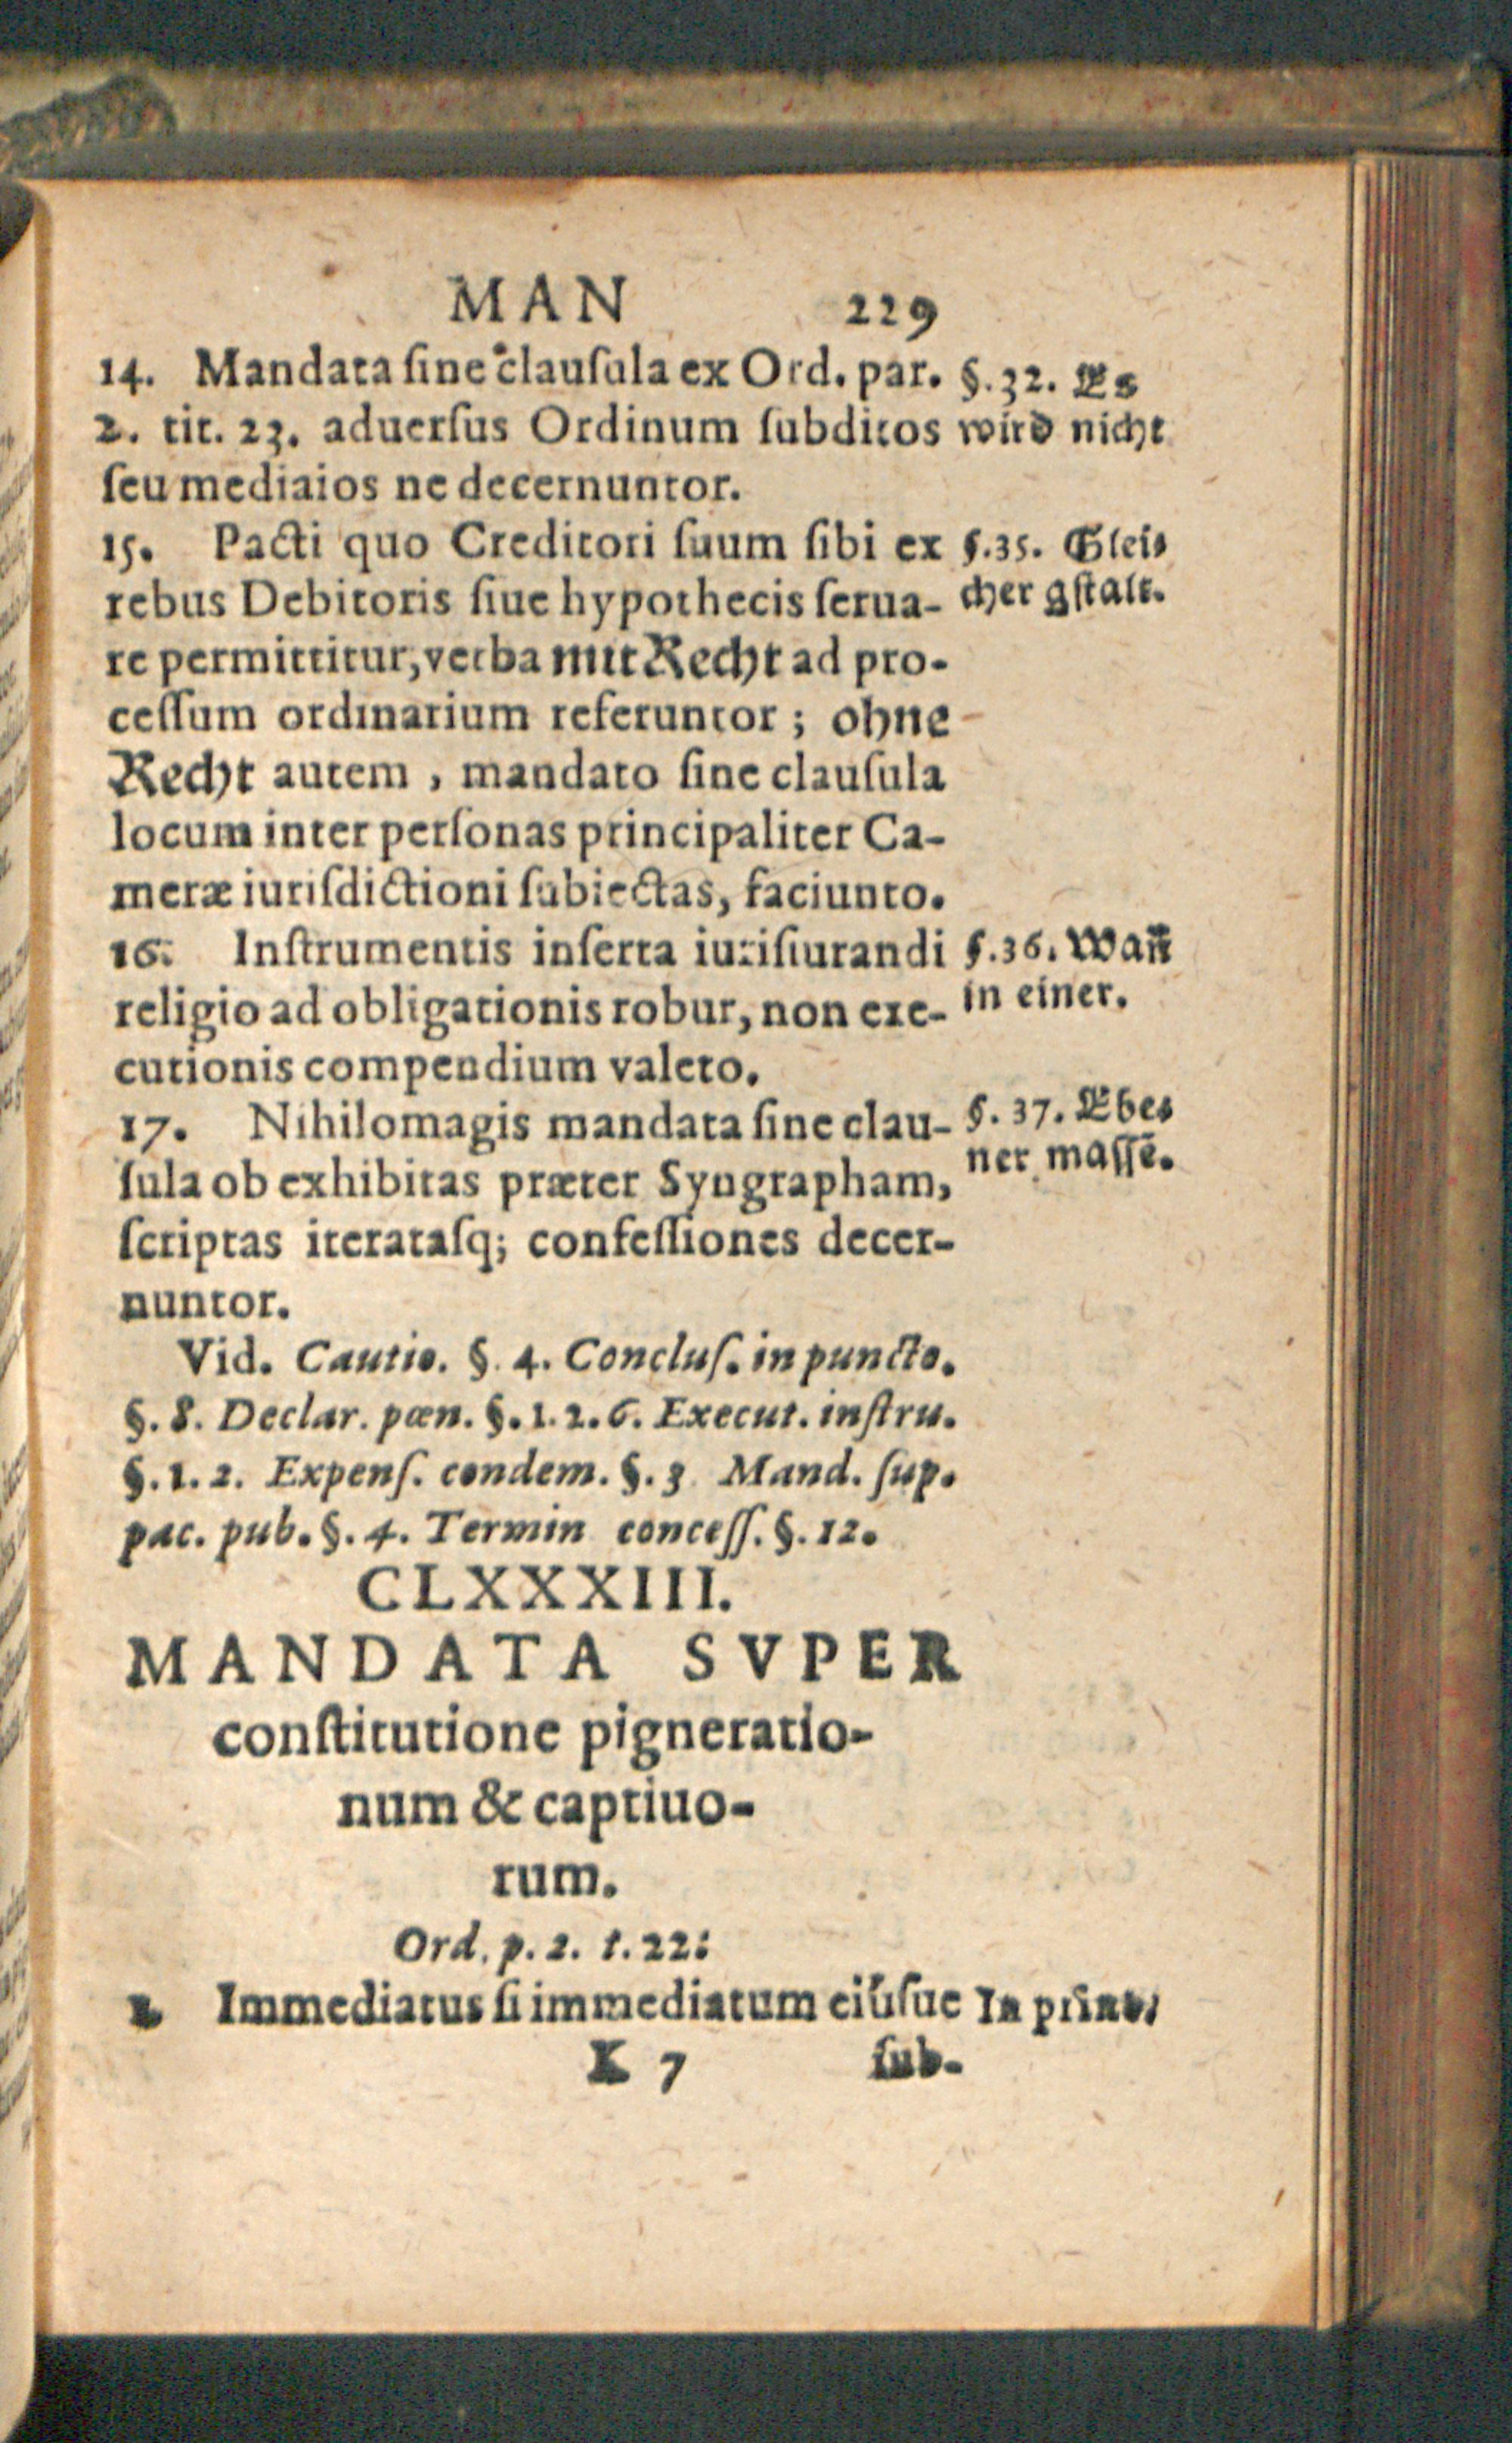 MAN 229
14. Mandata ſine clauſula ex Ord. par. §. 32. Es
2. tit. 23. aduerſus Ordinum ſubditos wird nicht
ſeu mediaios ne decernuntor.
15. Pacti quo Creditori ſuum ſibi ex §. 35. Glei-
rebus Debitoris ſiue hypothecis ſerua- cher gſtalt.
re permittitur, verba mit Recht ad pro-
ceſſum ordinarium referuntor; ohne
Recht autem, mandato ſine clauſula
locum inter perſonas principaliter Ca-
meræ iuriſdictioni ſubiectas, faciunto.
16. Inſtrumentis inſerta iuriſiurandi §. 36. Wañ
religio ad obligationis robur, non exe- in einer.
cutionis compendium valeto.
17. Nihilomagis mandata ſine clau- §. 37. Ebe-
ſula ob exhibitas præter Syngrapham, ner maſſē.
ſcriptas iterataſq; confeſſiones decer-
nuntor.
Vid. Cautio. §. 4. Concluſ. in puncto.
§. 8. Declar. pœn. §. 1. 2. 6. Execut. inſtru.
§. 1. 2. Expenſ. condem. §. 3 Mand. ſup.
pac. pub. §. 4. Termin conceſſ. §. 12.
CLXXXIII.
MANDATA SVPER
conſtitutione pigneratio-
num & captiuo-
rum.
Ord. p. 2. t. 22.
1. Immediatus ſi immediatum eiúſue In prin.
K 7 ſub-